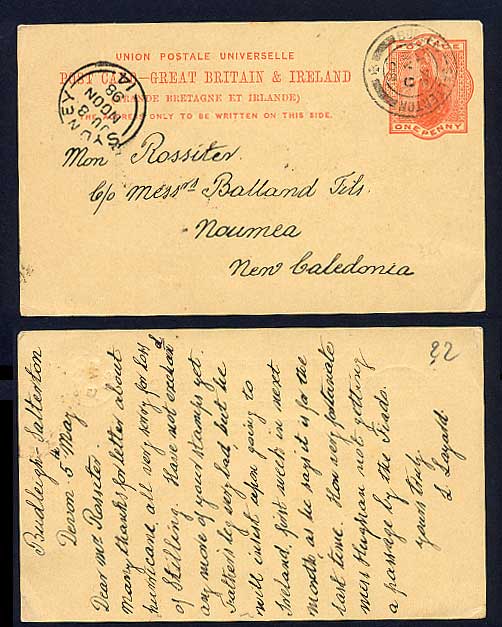 UNION POSTALE UNIVERSELLE
POST CARD—GREAT BRITAIN & IRELAND
(GRANDE BRETAGNE ET IRLANDE)
THE ADDRESS ONLY TO BE WRITTEN ON THIS SIDE.
POSTAGE
ONE PENNY
SYDNEY
JU 8
NOON
98
Mon Rossiter.
C/o Messrs Balland Fils.
Noumea
New Caledonia
22
Budleigh-Salterton
Devon 5th May
Dear Mr Rossiter
Many thanks for letter about
hurricane, all very sorry for loss
of Stilling. Have not
any more of your stamps yet.
Father's leg very bad but he
will insist upon going to
Ireland first week in next
month as he say it is for the
last time. How very fortunate
Miss Hughan not getting
a passage by the Tiado.
yours truly
L Layard